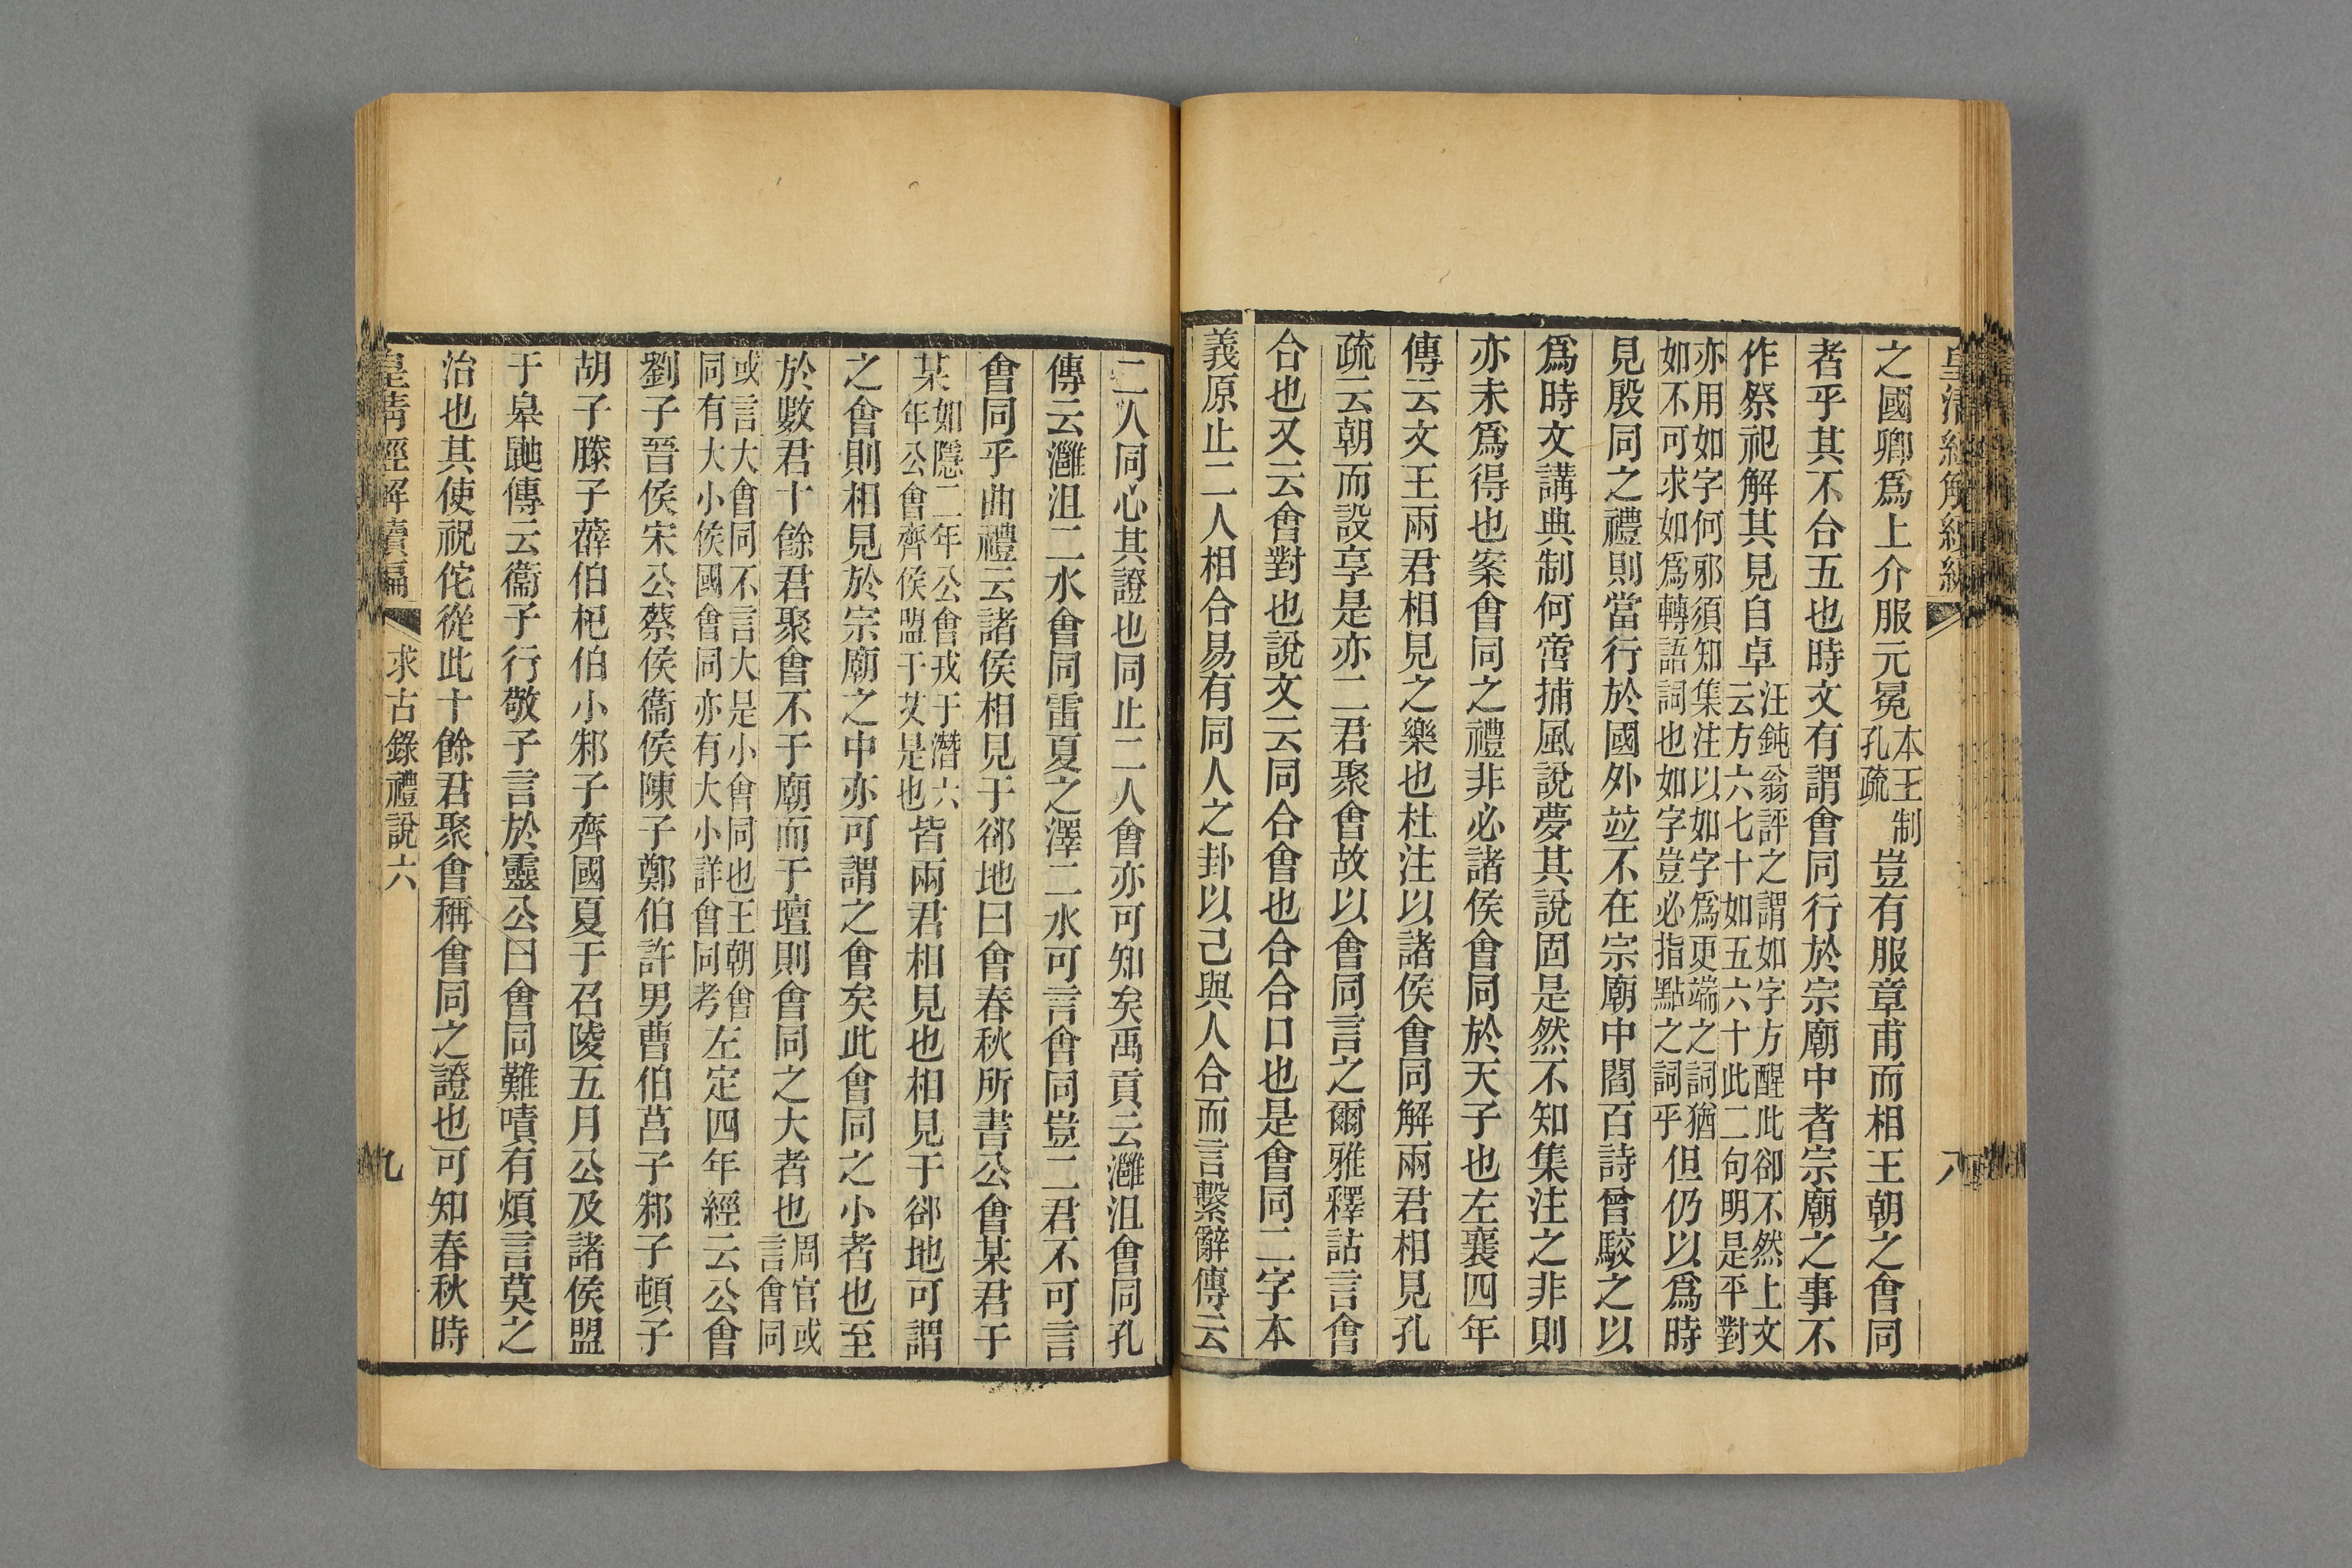 之國卿爲上介服元冕本王制孔疏豈有服章甫而相王朝之會同
者乎其不合五也時文有謂會同行於宗廟中者宗廟之事不
作祭祀解其見自卓汪鈍翁評之謂如字方醒此卻不然上文云方六七十如五六十此二句明是平對
亦用如字何邪須知集注以如字爲更端之詞猶如不可求如爲轉語詞也如字豈必指點之詞乎但仍以爲時
見殷同之禮則當行於國外竝不在宗廟中閻百詩曾駮之以
爲時文講典制何啻捕風說夢其說固是然不知集注之非則
亦未爲得也案會同之禮非必諸侯會同於天子也左襄四年
傳云文王兩君相見之樂也杜注以諸侯會同解兩君相見孔
疏云朝而設享是亦二君聚會故以會同言之爾雅釋詁言會
合也又云會對也說文云同合會也合合口也是會同二字本
義原止二人相合易有同人之卦以己與人合而言繫辭傳云
二人同心其證也同止二人會亦可知矣禹貢云灉沮會同孔
傳云灉沮二水會同雷夏之澤二水可言會同豈二君不可言
會同乎曲禮云諸侯相見于郤地曰會春秋所書公會某君于
某如隱二年公會戎于潛六年公會齊侯盟于艾是也皆兩君相見也相見于郤地可謂
之會則相見於宗廟之中亦可謂之會矣此會同之小者也至
於數君十餘君聚會不于廟而于壇則會同之大者也周官或言會同
或言大會同不言大是小會同也王朝會同有大小侯國會同亦有大小詳會同考左定四年經云公會
劉子晉侯宋公蔡侯衞侯陳子鄭伯許男曹伯莒子邾子頓子
胡子滕子薛伯杞伯小邾子齊國夏于召陵五月公及諸侯盟
于皐鼬傳云衞子行敬子言於靈公曰會同難嘖有煩言莫之
治也其使祝佗從此十餘君聚會稱會同之證也可知春秋時
皇清經解續編 求古錄禮說六 九